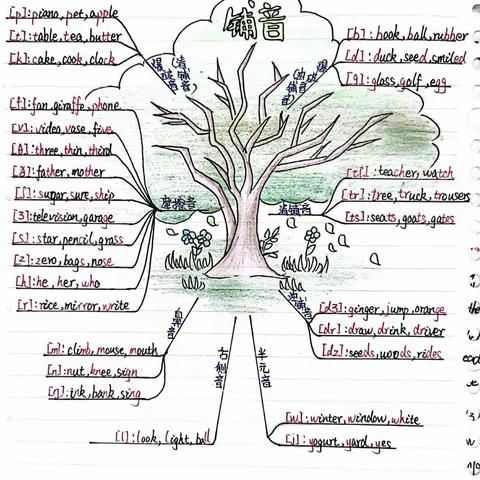 辅音
[p]:piano,pet,apple
[t]:table,tea,butter
[k]:cake,cook,clock
爆破音(清辅音)
[b]:book,ball,rubber
[d]:duck,seed,smiled
[g]:glass,golf,egg
爆破音(浊辅音)
[f]:fan,giraffe,phone
[v]:video,vase,five
[θ]:three,thin,third
[ð]:father,mother
[ʃ]:sugar,sure,ship
[ʒ]:television,garage
[s]:star,pencil,grass
[z]:zero,bags,nose
[h]:he,her,who
[r]:rice,mirror,write
摩擦音
[tʃ]:teacher,watch
[tr]:tree,truck,trousers
[ts]:seats,goats,gates
清辅音
[dʒ]:ginger,jump,orange
[dr]:draw,drink,driver
[dz]:seeds,woods,rides
浊辅音
[m]:climb,mouse,mouth
[n]:nut,knee,sign
[ŋ]:ink,bank,sing
鼻音
舌侧音
[l]:look,light,ball
半元音
[w]:winter,window,white
[j]:yogurt,yard,yes